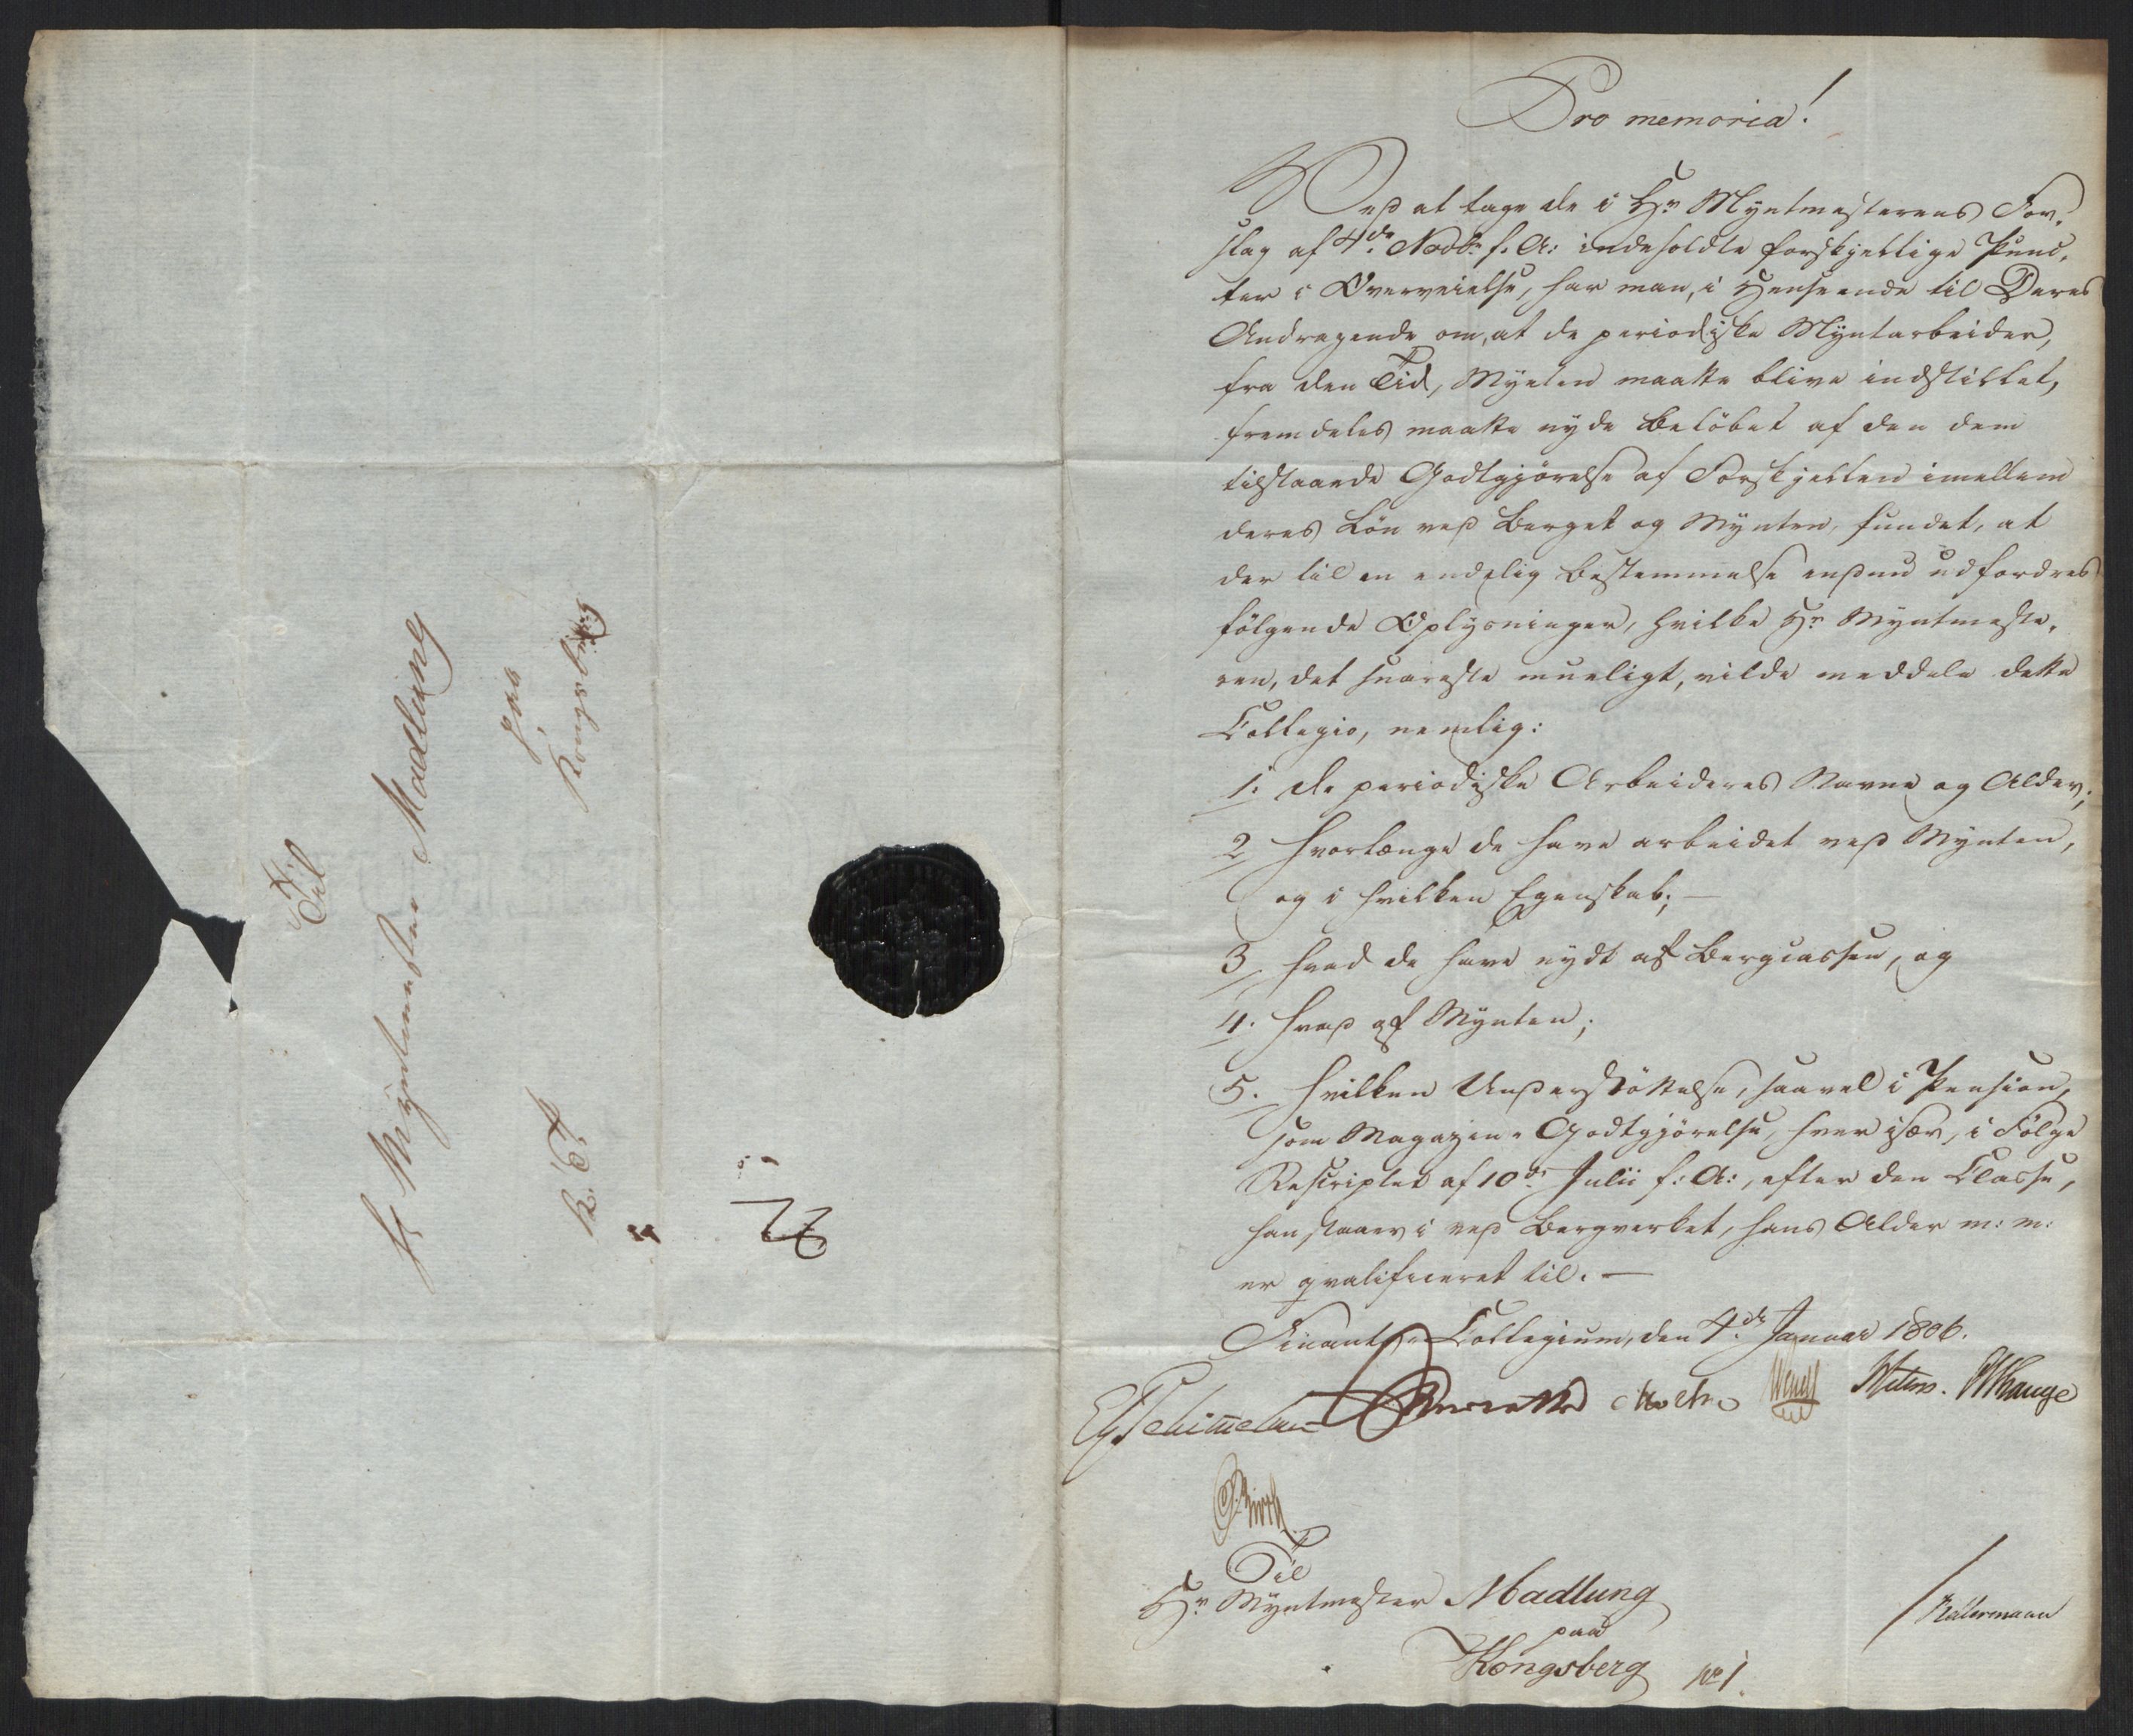 Til
Hr Myntmester Madlung
paa
Kongsberg
K. T.
Pro memoria!
Ved at tage de i Hr Myntmesterens For-
slag af 4de Novbr f. A: indeholdte forskjellige Punc-
ter i Overveielse, har man, i Henseende til Deres
Andragende om, at de periodiske Myntarbeider,
fra den Tid, Mynten maatte blive indstillet,
fremdeles maatte nyde Beløbet af den dem
tilstaaede Godtgjörelse af Forskjellen imellem
deres Lön ved Berget og Mynten, fundet, at
der til en endelig Bestemmelse endnu udfordres
fölgende Oplysninger, hvilke Hr Myntmeste-
ren, det snareste mueligt, vilde meddele dette
Collegio, nemlig:
1. de periodiske Arbeideres Navne og Alder;
2 hvorlænge de have arbeidet ved Mynten,
og i hvilken Egenskab; —
3 hvad de have nydt af Bergcassen, og
4. hvad af Mynten;
5. hvilken Understöttelse, saavel i Pension,
som Magazin-Godtgjörelse, hver især, i Fölge
Rescriptet af 10de Julii f: A:, efter den Classe,
han staaer i ved Bergverket, hans Alder m: m:
er qvalificeret til. —
Finants-Collegium, den 4de Januar 1806.
Schimmelmann Moltke Wendt
Til
Hr Myntmester Madlung
paa
Kongsberg No 1.
Kellermann